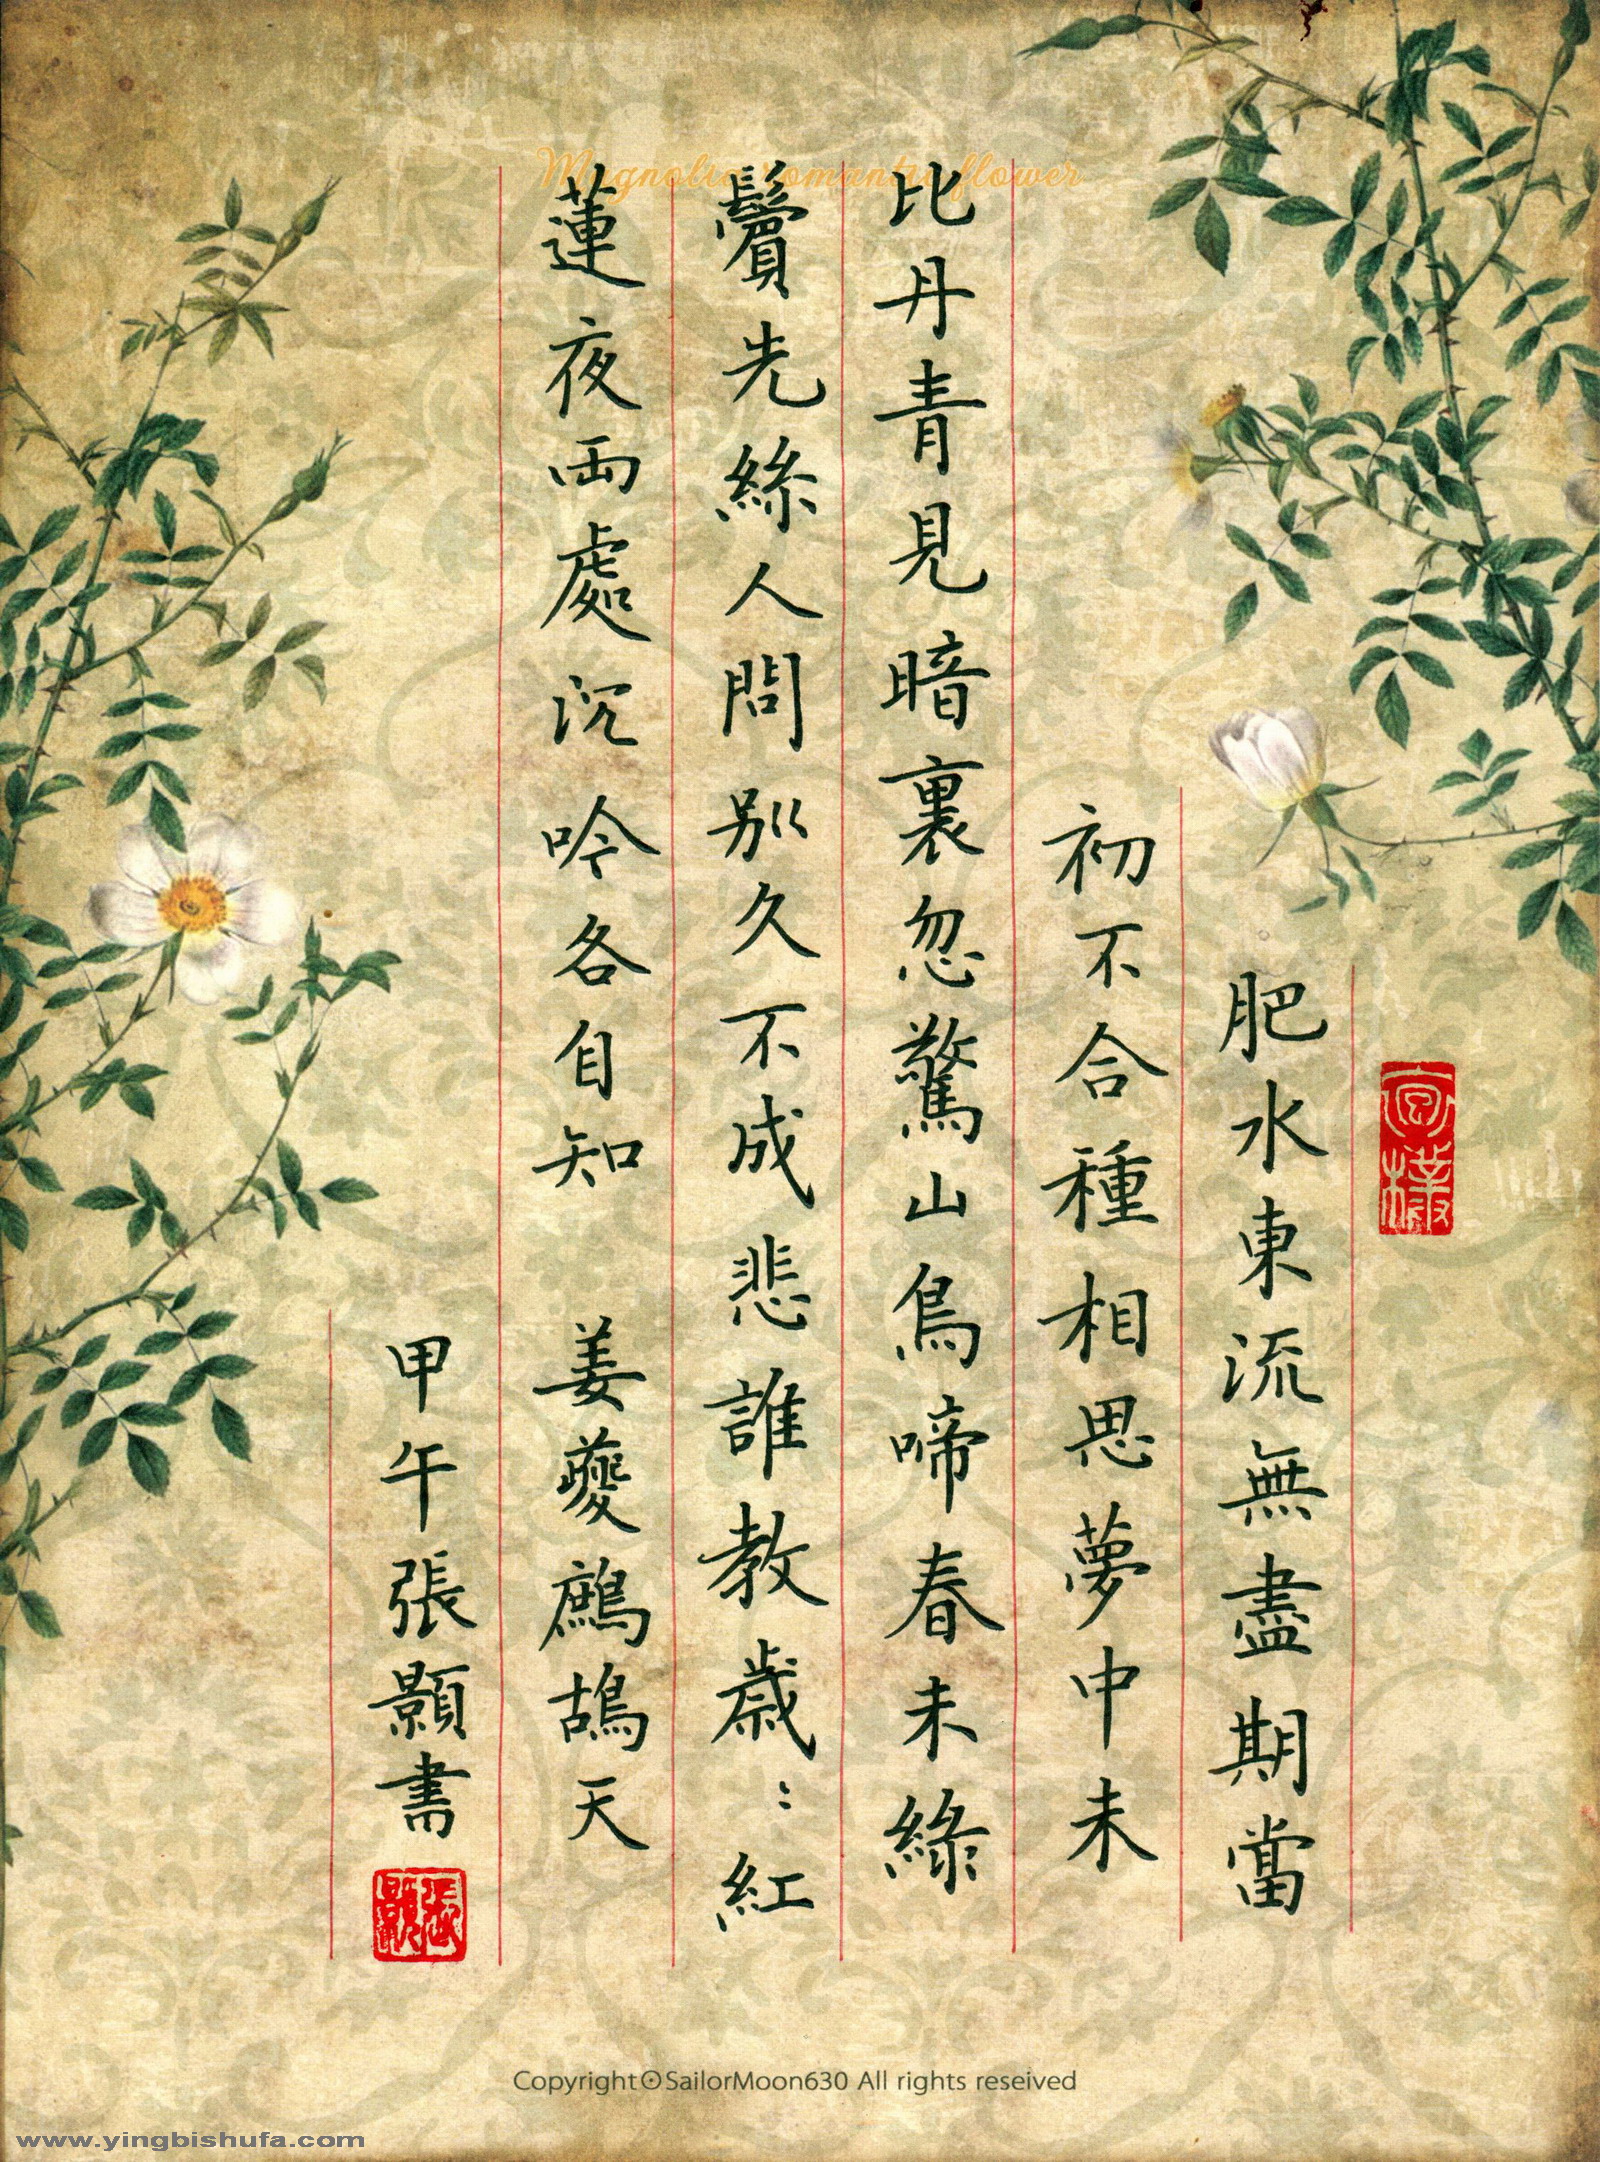 Magnolia romantic flower
肥水東流無盡期當
初不合種相思夢中未
比丹青見暗裏忽驚山鳥啼春未綠
鬢先絲人間別久不成悲誰教歲：紅
蓮夜兩處沉吟各自知 姜夔鷓鴣天
甲午張顥書
張顥
Copyright⊙SailorMoon630 All rights reseived
www.yingbishufa.com